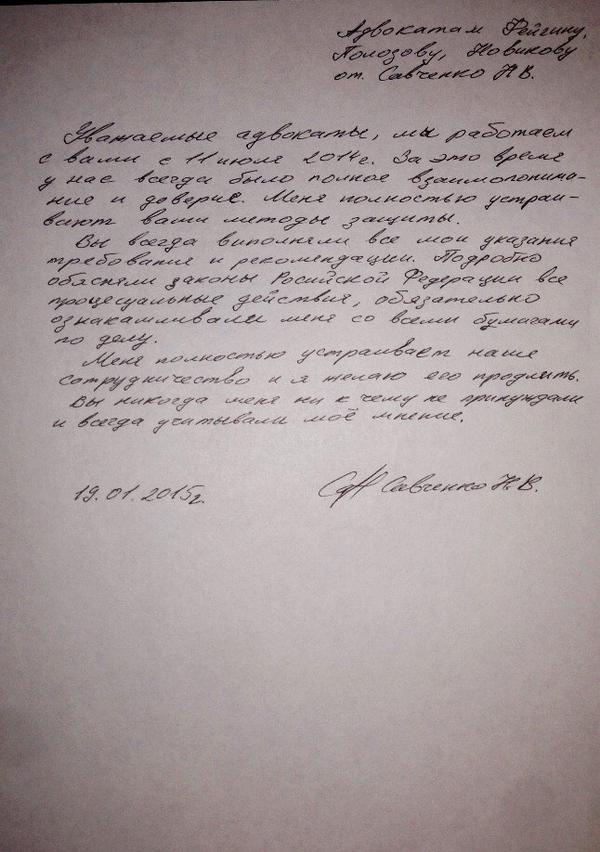 Адвокатам Фейгину,
Полозову, Новикову
от Савченко Н.В.
Уважаемые адвокаты, мы работаем
с вами с 11 июля 2014г. За это время
у нас всегда было полное взаимопонима-
ние и доверие. Меня полностью устраи-
вают ваши методы защиты.
Вы всегда виполняли все мои указания
требования и рекомендации. Подробно
обясняли законы Росийской Федерации все
процесуальные действия, обязательно
ознакамливали меня со всеми бумагами
по делу.
Меня полностью устраивает наше
сотрудничество и я желаю его продлить.
Вы никогда меня ни к чему не принуждали
и всегда учитывали моё мнение.
19.01.2015г.
Савченко Н.В.